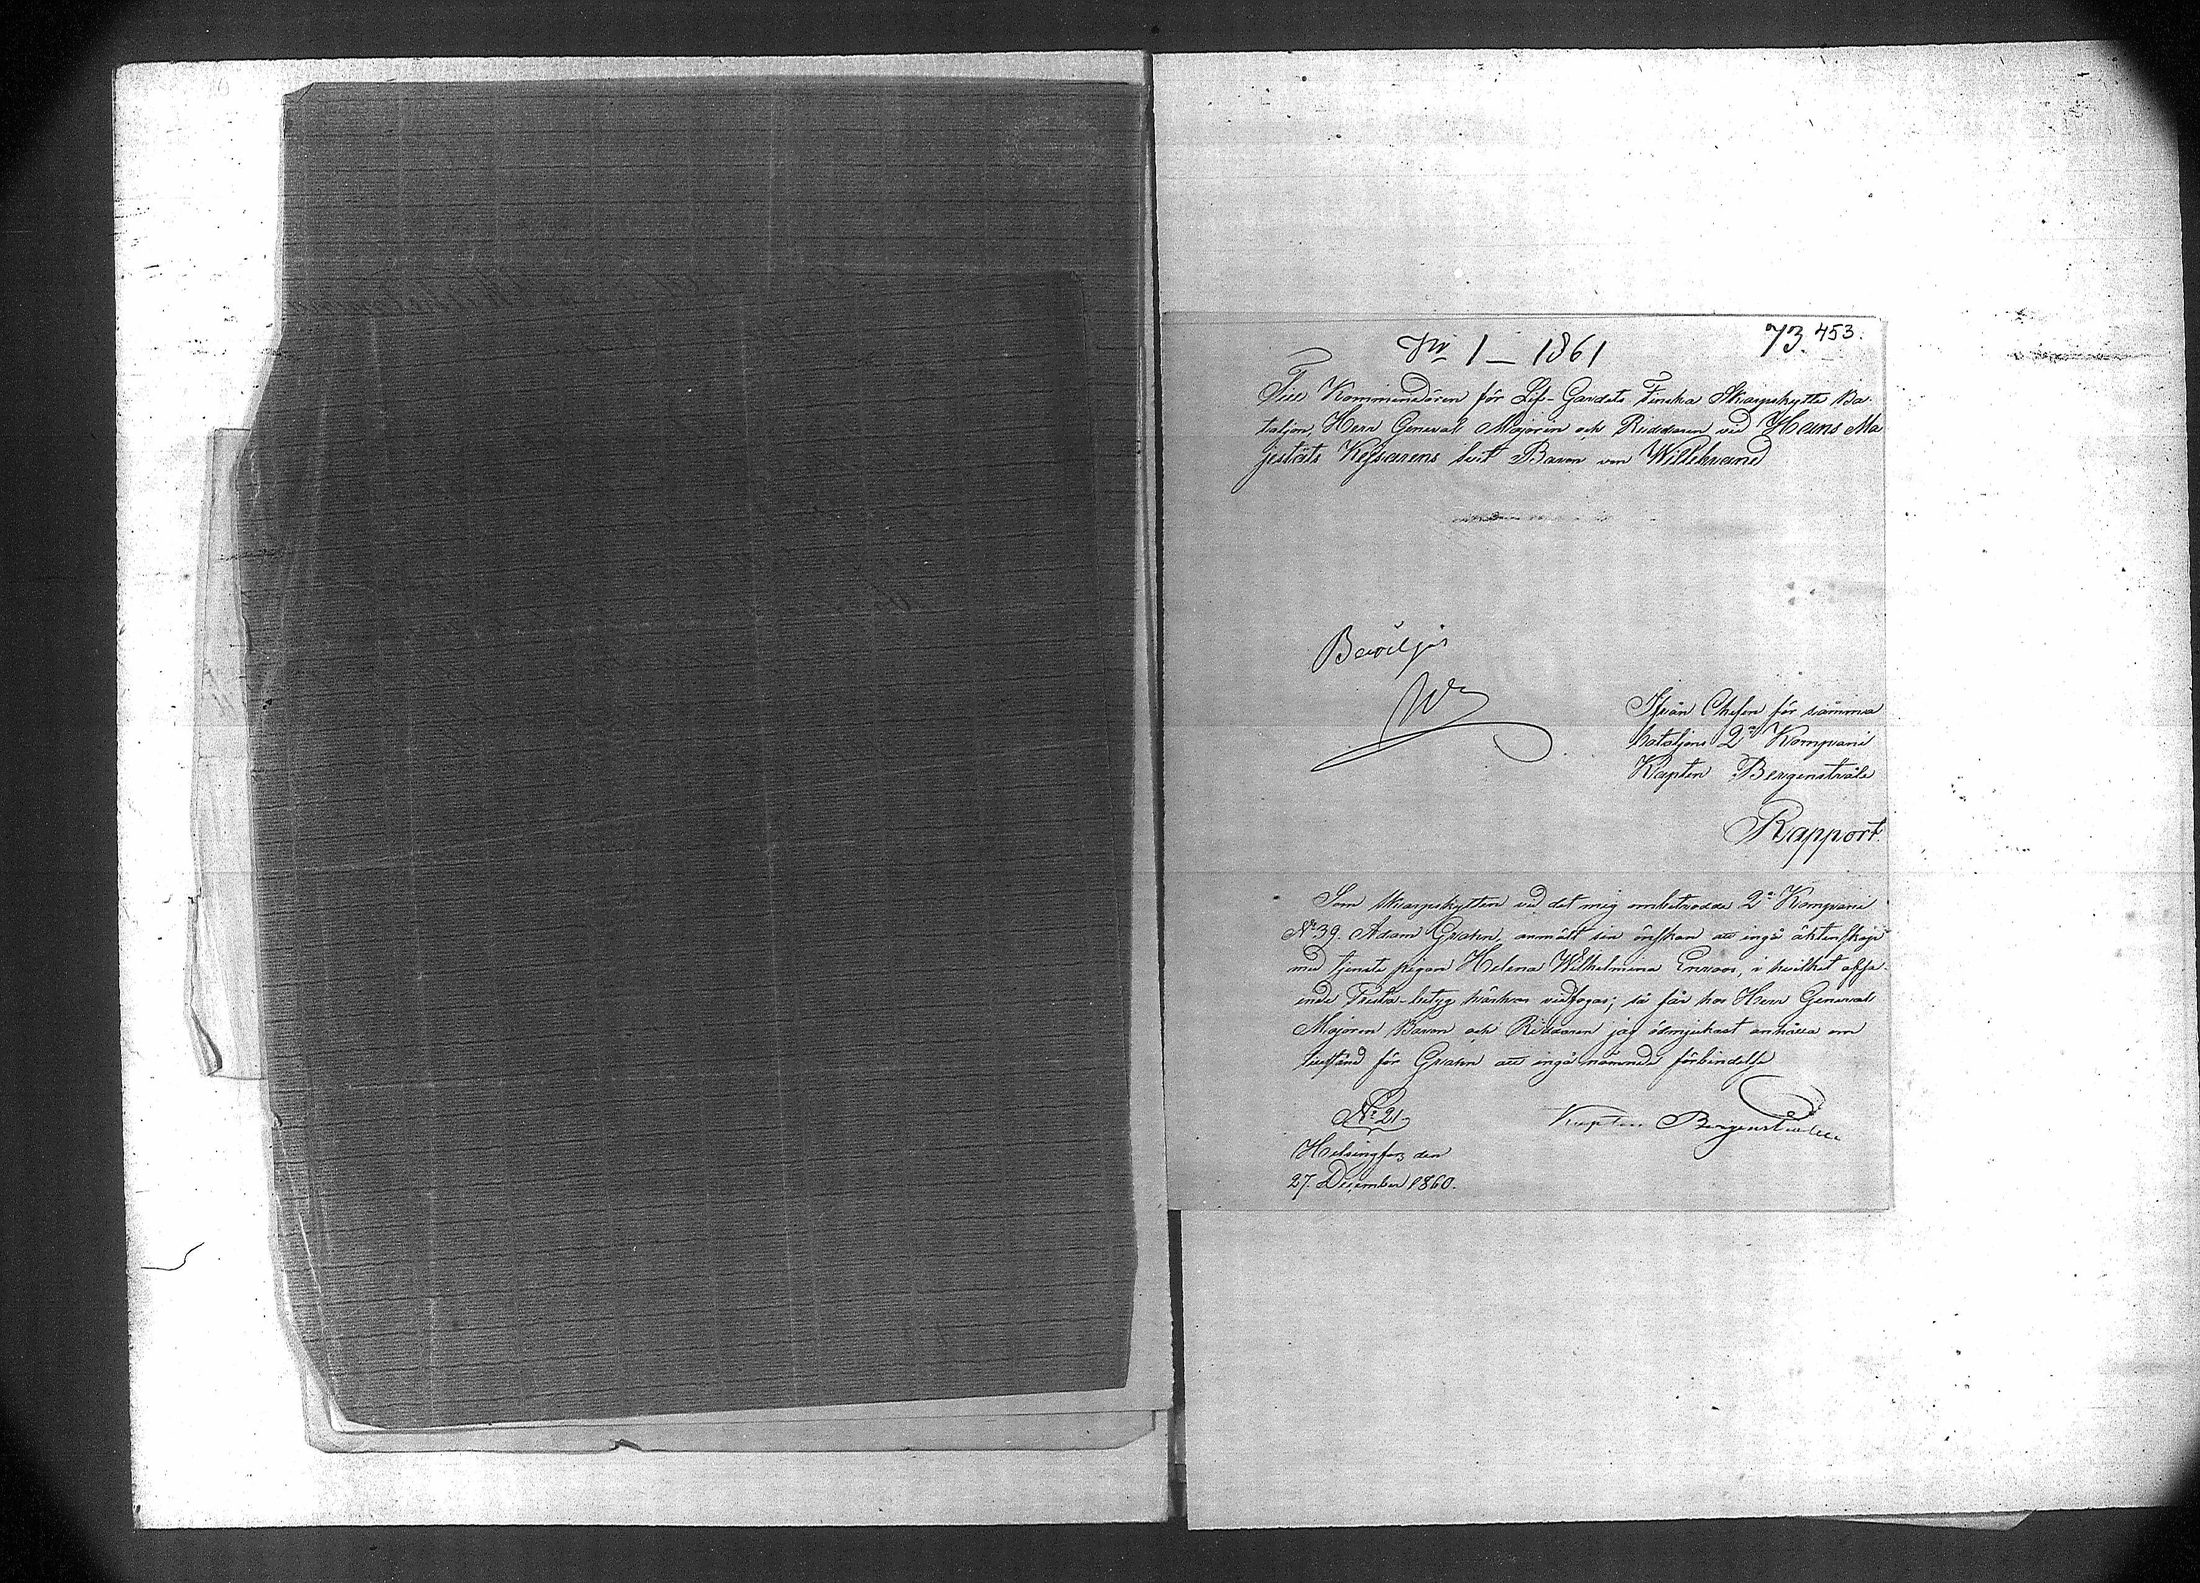 Nr 1 – 1861
73. 453.
Till Kommendören för Lif-Gardets Finska Skarpskytte Ba-
taljon, Herr General Majoren och Riddaren vid Hans Ma
jestäts Kejsarens Svit Baron von Willebrand
Beviljas
Ifrån Chefen för samma
bataljons 2a Kompani
Kapten Bergenstråle
Rapport.
Som skarpskytten vid det mig anbetrodda 2a Kompani
No 39. Adam Grahn, anmält sin önskan att ingå äktenskap
med tjenste pigan Helena Wilhelmina Enroos, i hvilket afse-
ende Prestbetyg härhos vidfogas; så får hos Herr General
Majoren Baron och Riddaren jag ödmjukast anhålla om
tillstånd för Grahn att ingå nämnde förbindelse
No 21
Kapten Bergenstråle
Helsingfors den
27. December 1860.